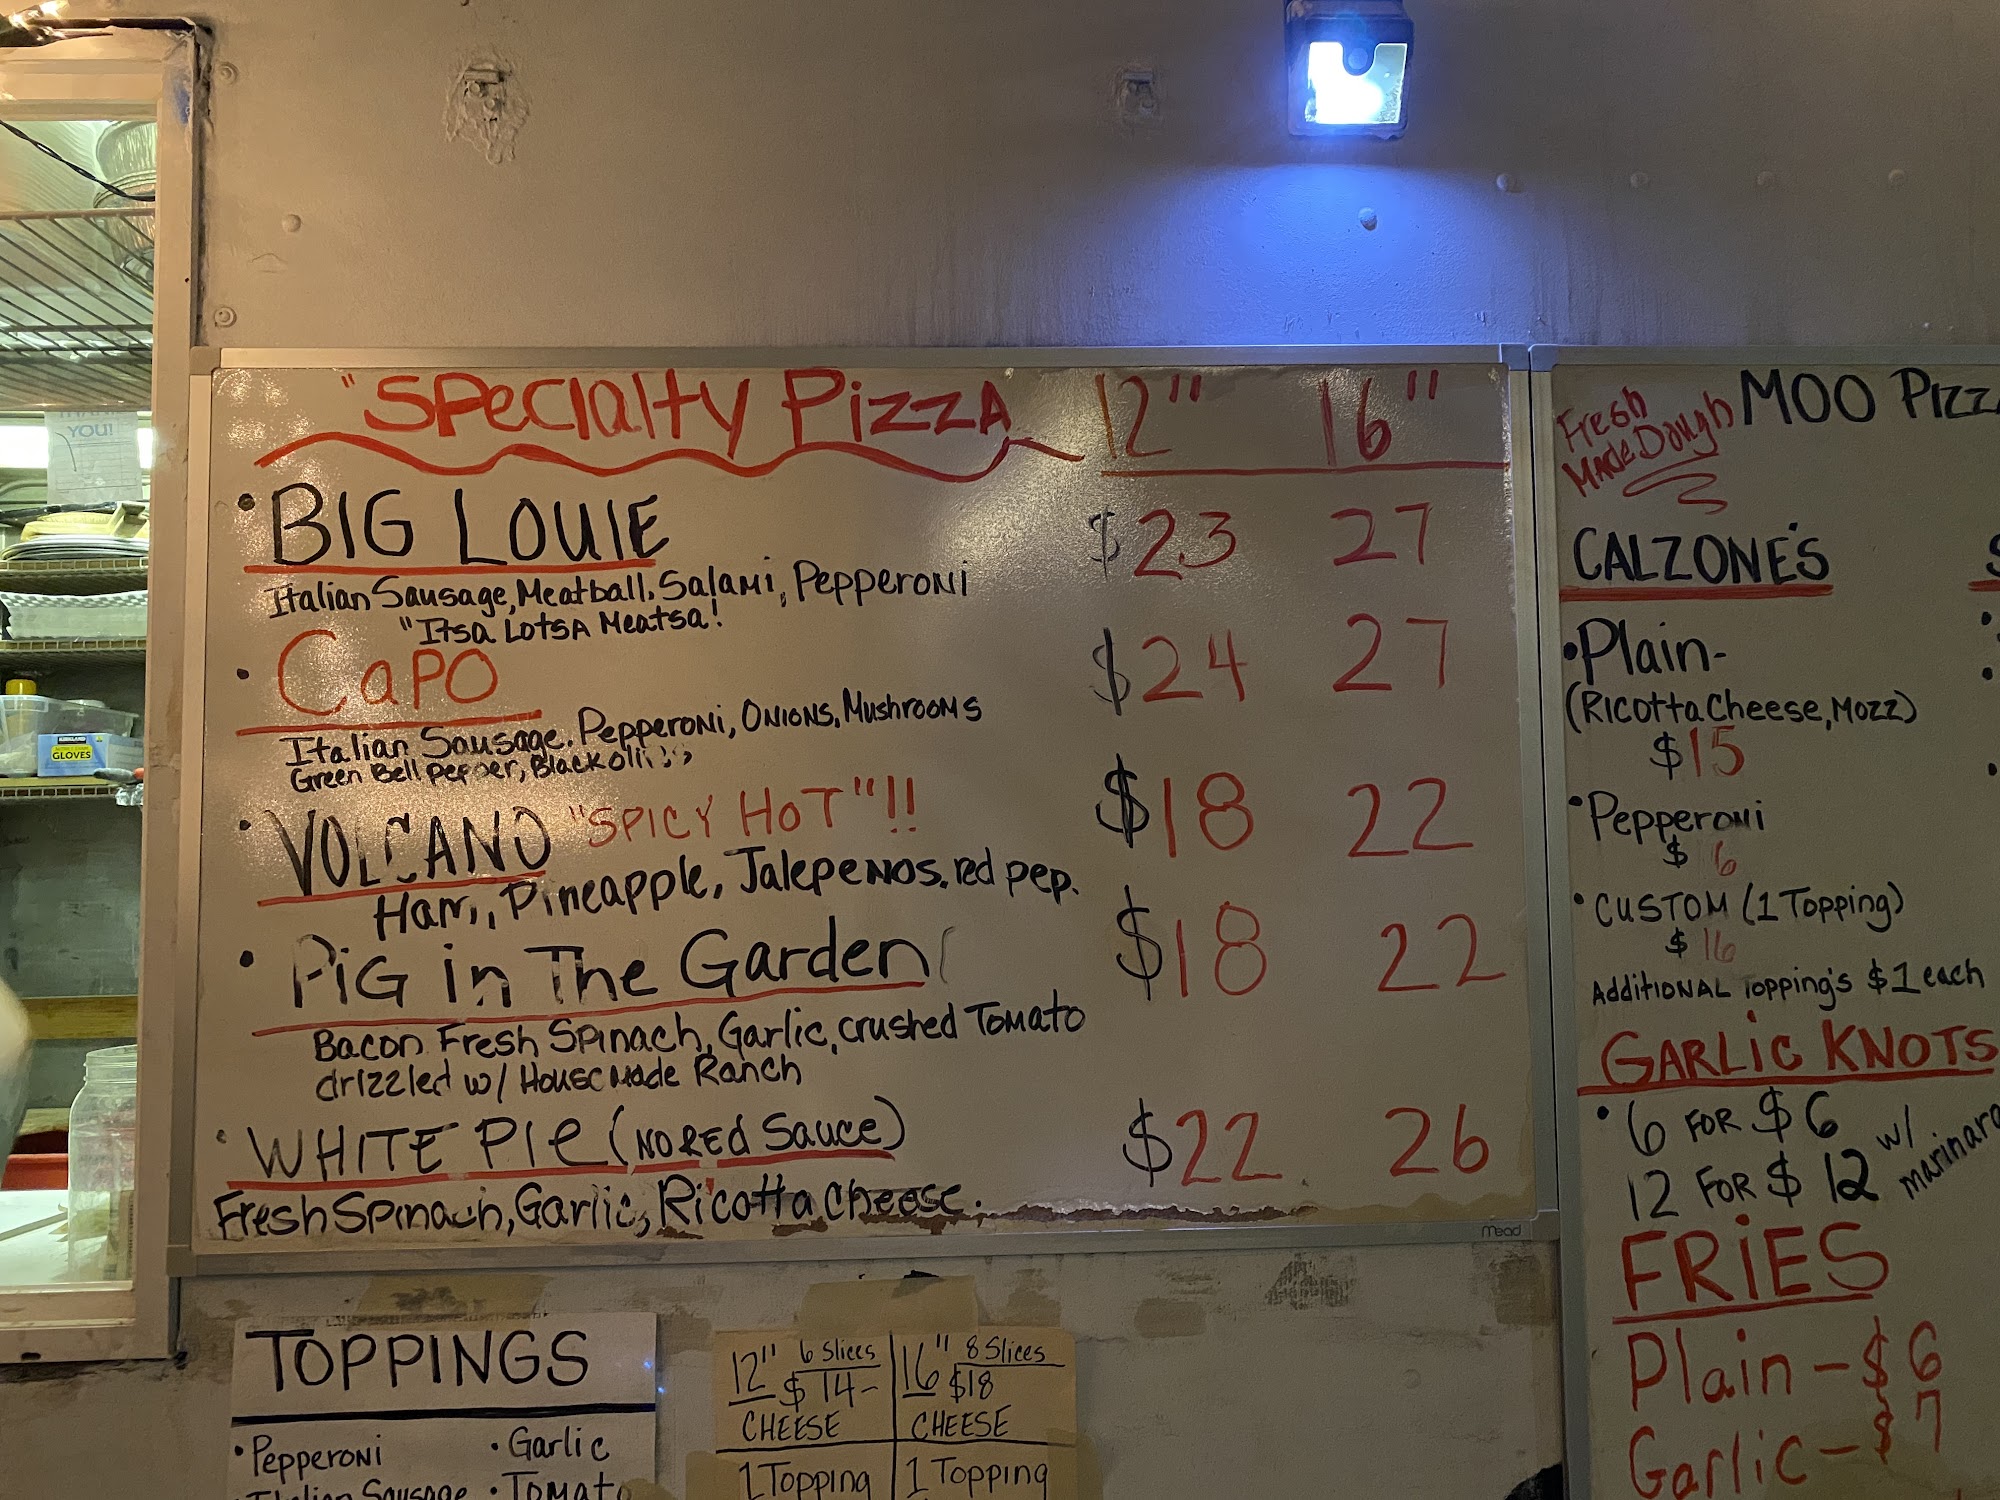 "Specialty Pizza 12" 16"
• BIG LOUIE $23 27
Italian Sausage, Meatball, Salami, Pepperoni
"Itsa Lotsa Meatsa!
• CaPO $24 27
Italian Sausage, Pepperoni, Onions, Mushrooms
Green Bell pepper, Black
• VOLCANO "SPICY HOT"!! $18 22
Ham, Pineapple, Jalepenos, red pep.
• PiG in The Garden $18 22
Bacon Fresh Spinach, Garlic, crushed Tomato
drizzled w/ House made Ranch
• WHITE PIE (NO RED Sauce) $22 26
Fresh Spinach, Garlic, Ricotta Cheese.
Mead
Fresh
Made Dough
MOO
CALZONE'S
• Plain-
(Ricotta Cheese, Mozz)
$15
• Pepperoni
$ 6
• CUSTOM (1 Topping)
$ 16
Additional Topping's $1 each
GARLiC KNOTS
• 6 FOR $6
12 FOR $12 w/
marinara
FRiES
Plain - $6
Garlic - $7
TOPPINGS
• Pepperoni
• Garlic
Sausage
12" 6 Slices
$14-
CHEESE
1 Topping
16" 8 Slices
$18
CHEESE
1 Topping
YOU!
KIRKLAND
GLOVES